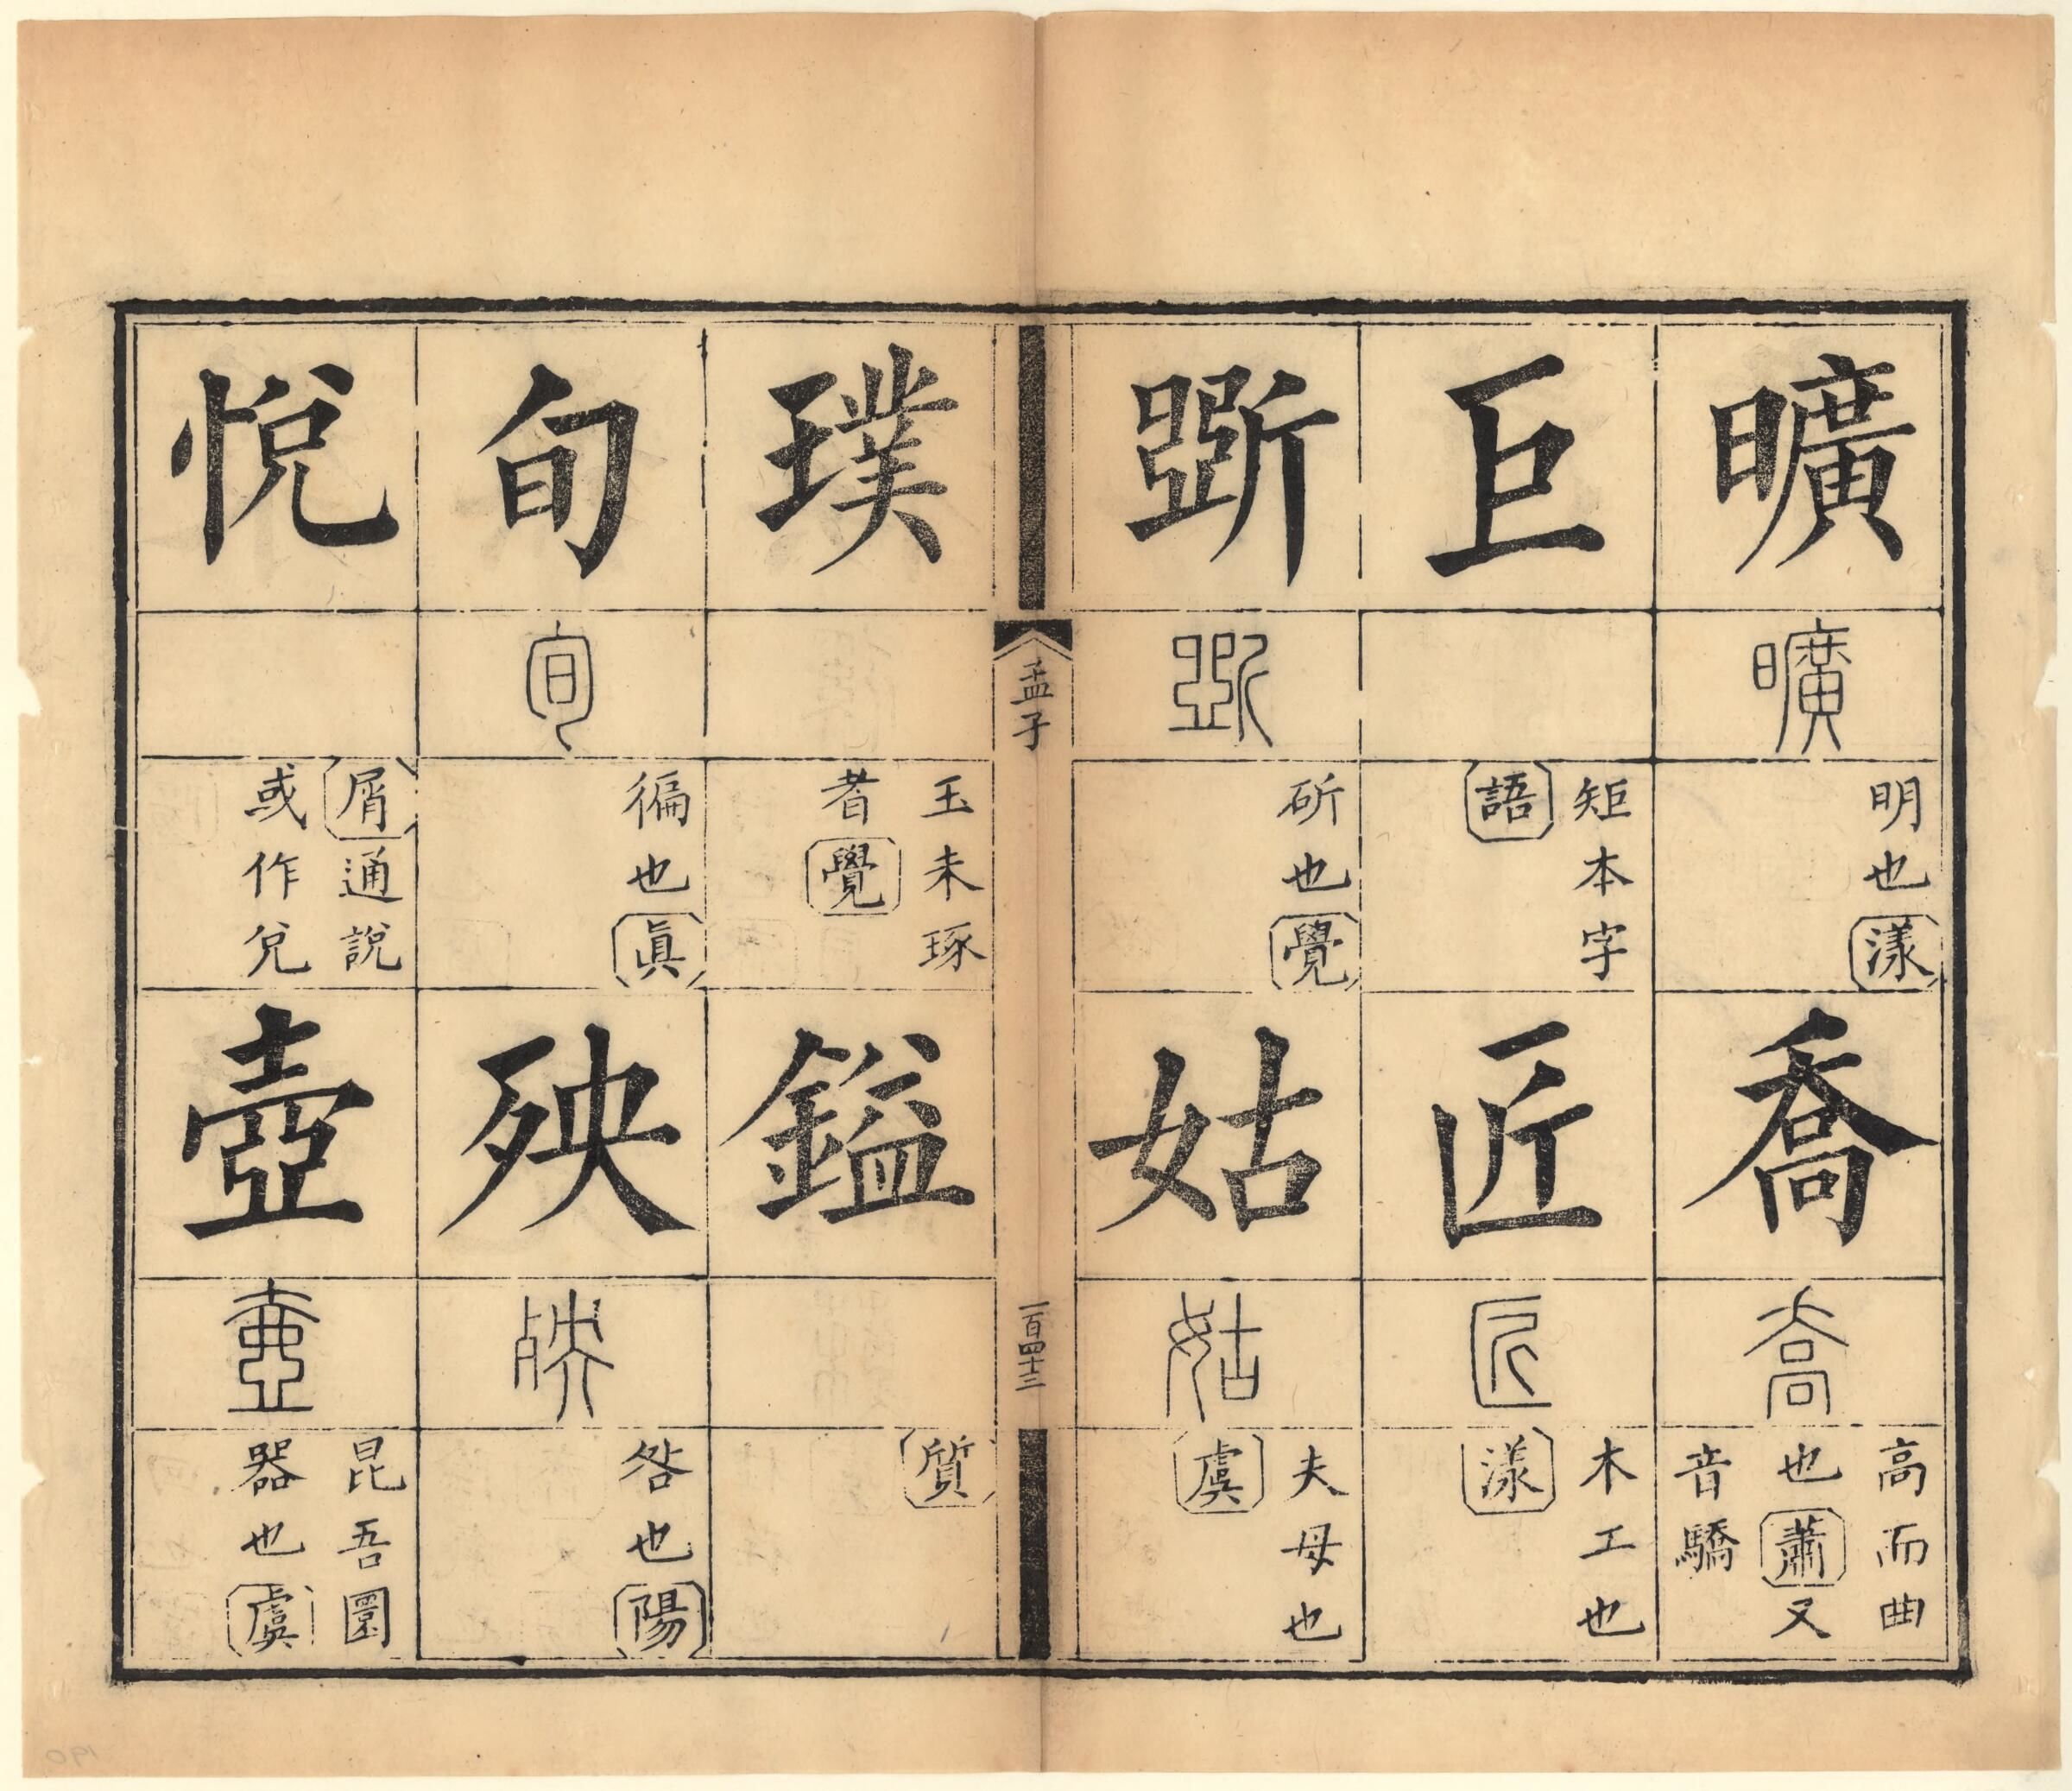 曠
曠
明也漾
喬
喬
高而曲
也蕭又
音驕
巨
矩本字
語
匠
匠
木工也
漾
斵
斵
斫也覺
姑
姑
夫母也
虞
孟子
一百四十三
璞
玉未琢
者覺
鎰
質
旬
旬
徧也眞
殃
殃
咎也陽
悅
屑通說
或作兌
壺
壺
昆吾圜
器也虞